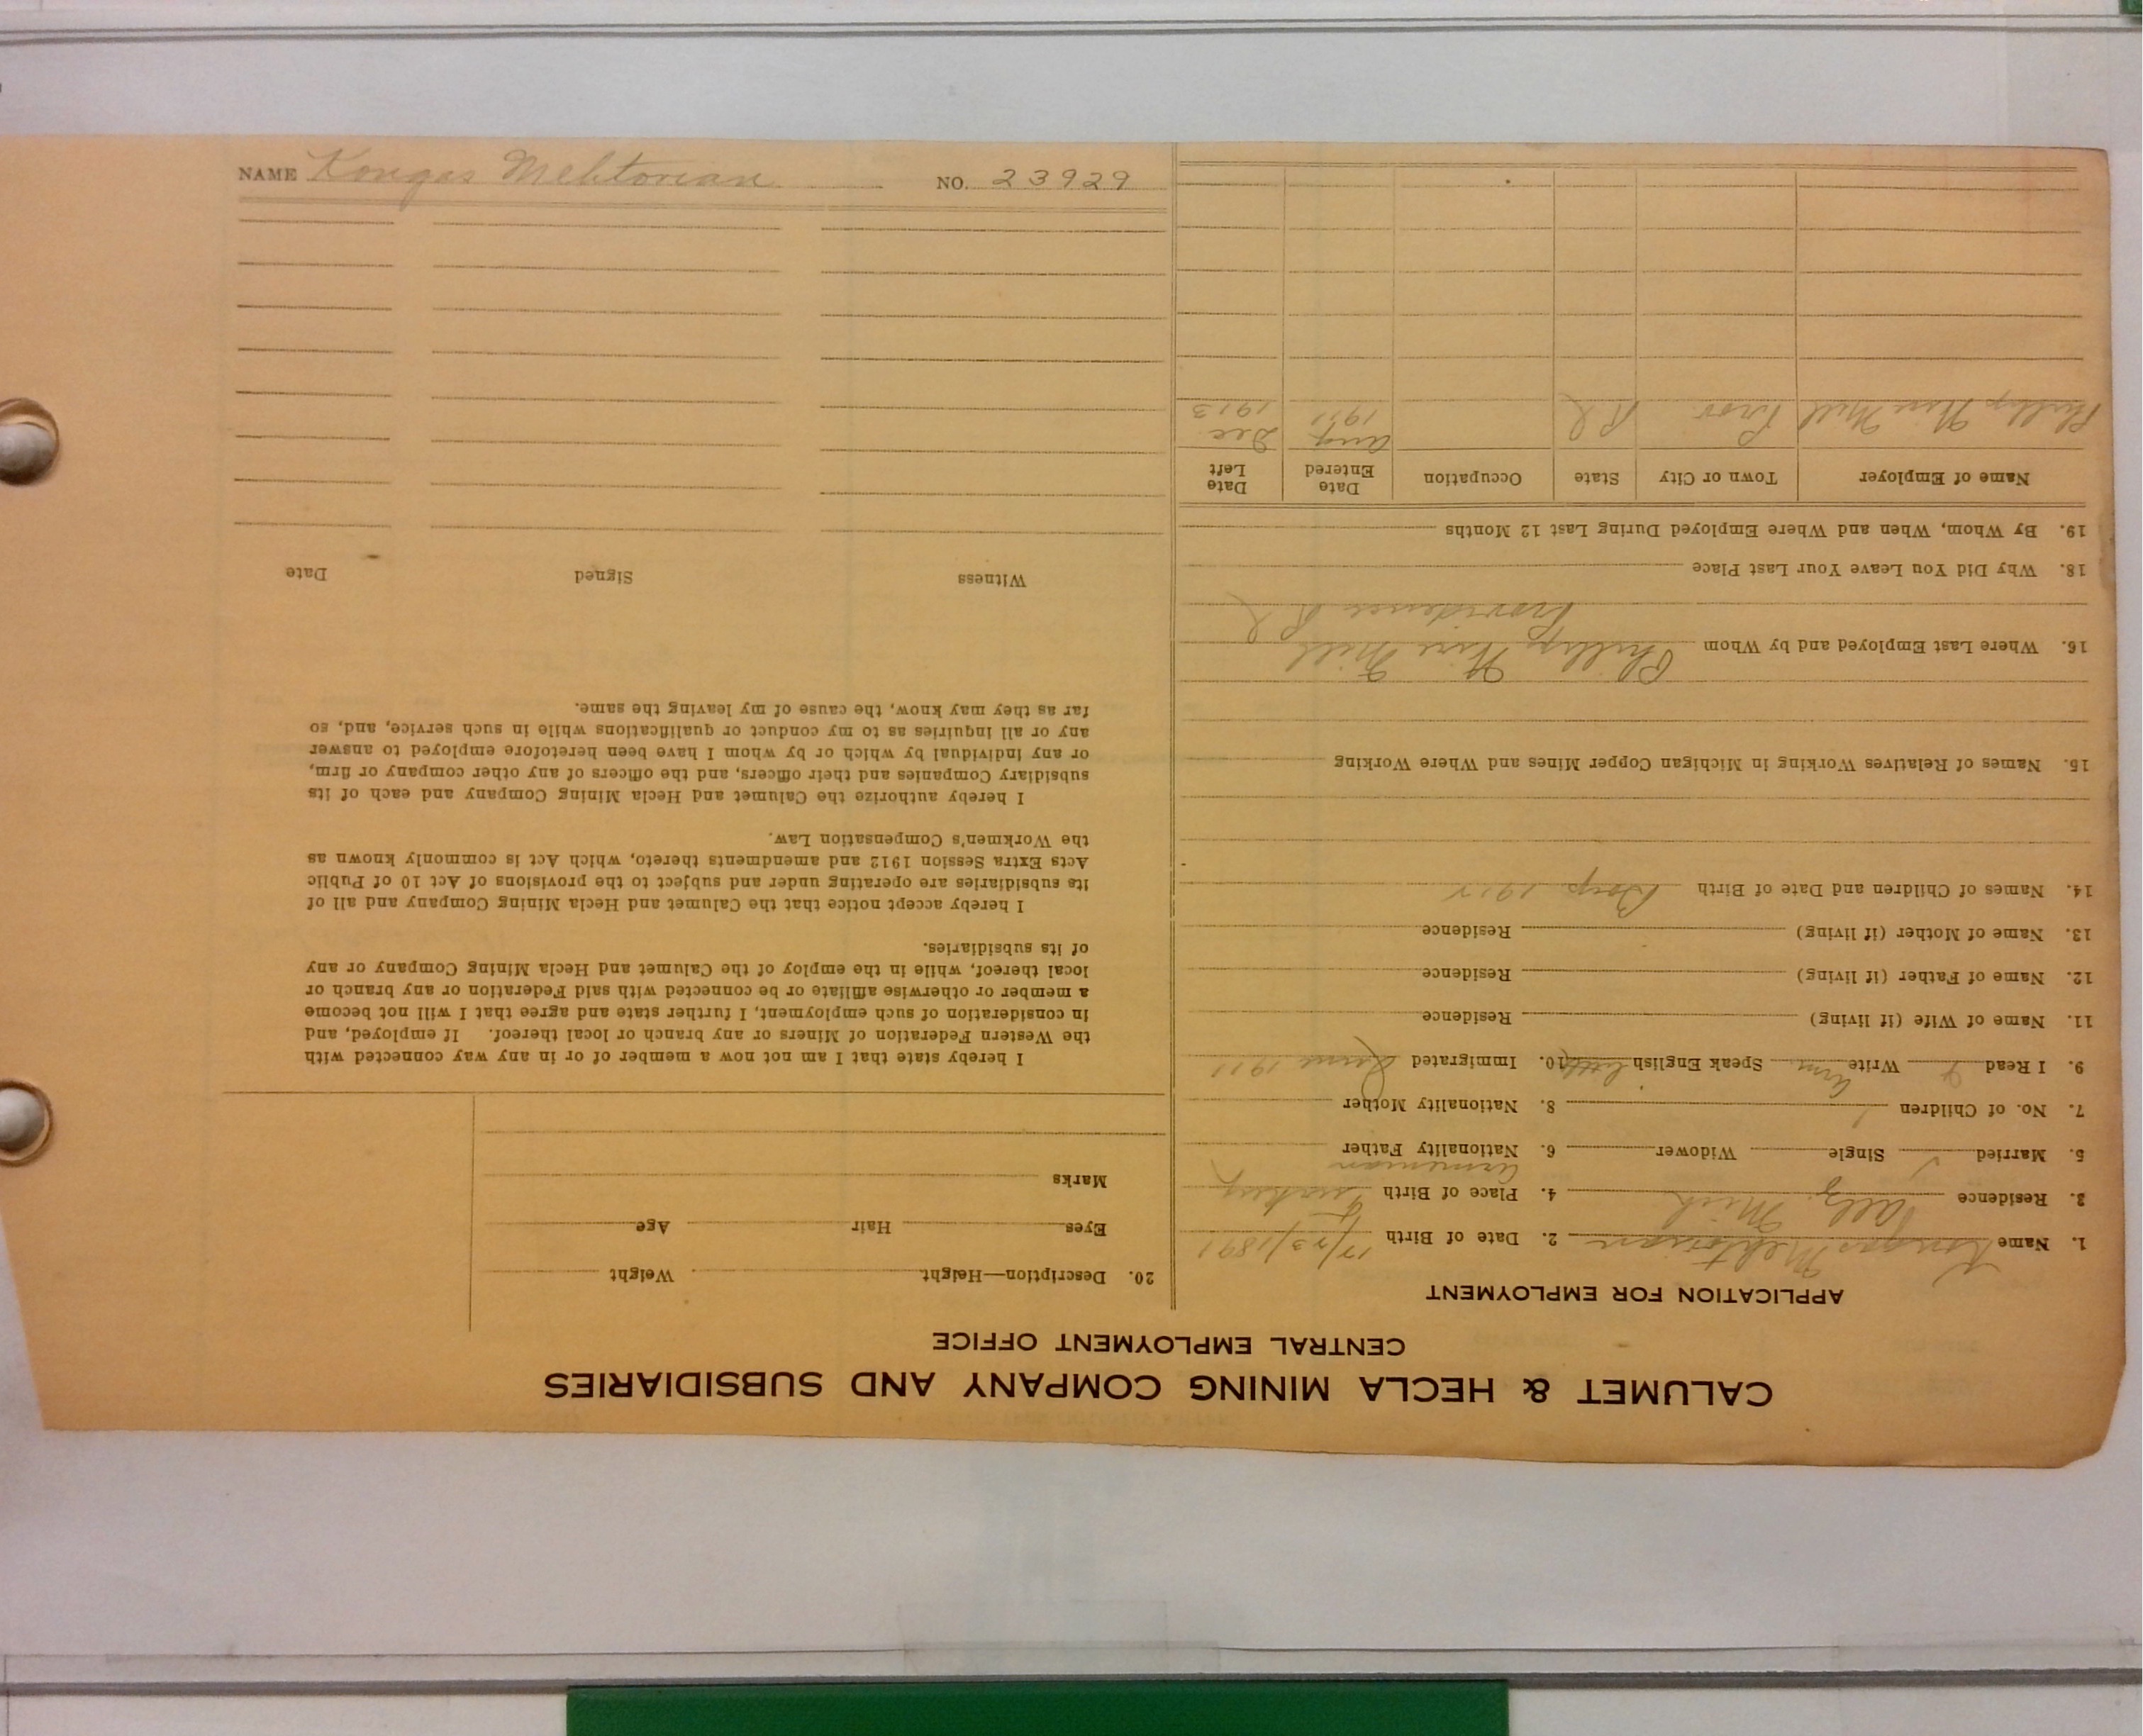 NAME Kongas Mehtorian NO. 23929
CALUMET & HECLA MINING COMPANY AND SUBSIDIARIES
CENTRAL EMPLOYMENT OFFICE
APPLICATION FOR EMPLOYMENT
1. Name Kongas Mehtorian 2. Date of Birth /1891
3. Residence Mich 4. Place of Birth Turkey
Armenian
5. Married Single Widower 6. Nationality Father
7. No. of Children 1 8. Nationality Mother
9. I Read Write Arm. Speak English little 10. Immigrated June 1911
11. Name of Wife (if living) Residence
12. Name of Father (if living) Residence
13. Name of Mother (if living) Residence
14. Names of Children and Date of Birth Boy
15. Names of Relatives Working in Michigan Copper Mines and Where Working
16. Where Last Employed and by Whom Phillip Wire Mill
Providence R I
18. Why Did You Leave Your Last Place
19. By Whom, When and Where Employed During Last 12 Months
Name of Employer Town or City State Occupation Date Entered Date Left
Phillip Wire Mill Prov R I Aug 1911 Dec 1913
20. Description—Height Weight
Eyes Hair Age
Marks
I hereby state that I am not now a member of or in any way connected with
the Western Federation of Miners or any branch or local thereof. If employed, and
in consideration of such employment, I further state and agree that I will not become
a member or otherwise affiliate or be connected with said Federation or any branch or
local thereof, while in the employ of the Calumet and Hecla Mining Company or any
of its subsidiaries.
I hereby accept notice that the Calumet and Hecla Mining Company and all of
its subsidiaries are operating under and subject to the provisions of Act 10 of Public
Acts Extra Session 1912 and amendments thereto, which Act is commonly known as
the Workmen's Compensation Law.
I hereby authorize the Calumet and Hecla Mining Company and each of its
subsidiary Companies and their officers, and the officers of any other company or firm,
or any individual by which or by whom I have been heretofore employed to answer
any or all inquiries as to my conduct or qualifications while in such service, and, so
far as they may know, the cause of my leaving the same.
Witness Signed Date